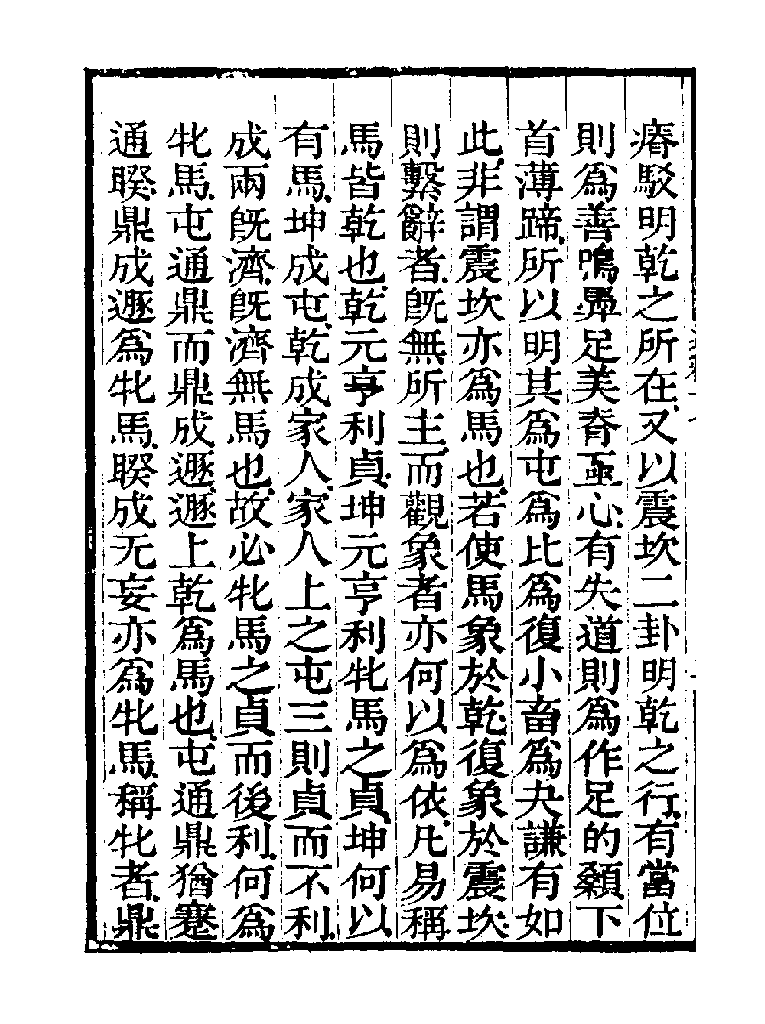 瘠駁明乾之所在又以震坎二卦明乾之行有當位
則爲善鳴馵足美脊亟心有失道則爲作足的顙下
首薄蹄所以明其爲屯爲比爲復小畜爲夬謙有如
此非謂震坎亦爲馬也若使馬象於乾復象於震坎
則繫辭者旣無所主而觀象者亦何以爲依凡易稱
馬皆乾也乾元亨利貞坤元亨利牝馬之貞坤何以
有馬坤成屯乾成家人家人上之屯三則貞而不利
成兩旣濟旣濟無馬也故必牝馬之貞而後利何爲
牝馬屯通鼎而鼎成遯遯上乾爲馬也屯通鼎猶蹇
通睽鼎成遯爲牝馬睽成无妄亦爲牝馬稱牝者鼎